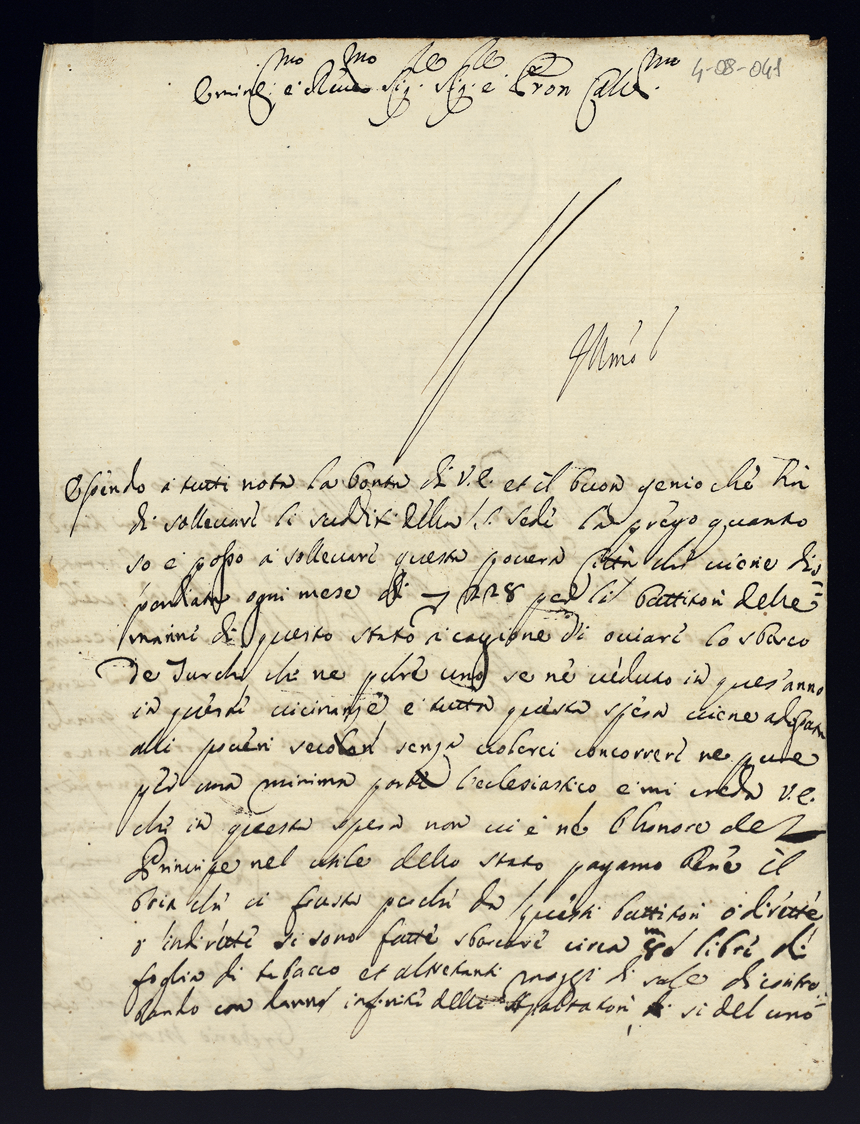 Emin.mo e Rev.mo Sig.re Sig.re e Pron Col.mo
4-08-041
Essendo a tutti nota la bontà di V.E. et il buon genio che hà
di sollevare li sudditi della S. Sede la prego quanto
so e posso a sollevare questa povera Città che viene dis
pendiata ogni mese di 228 per li battitori delle
marine di questo stato a cagione di oviare lo sbarco
de Turchi che ne pure uno se nè veduto in quest'anno
in queste vicinanze e tutta questa spesa viene
alli poveri secolari senza volerci concorrere ne pure
per una minima parte l'eclesiastico e mi creda V.E.
che in questa spesa non vi è ne l'honore del
Principe nel utile dello stato pagamo bene il
che ci frusta perche da questi battitori o dirette
o indirette si sono fatte sbarcare circa libre di
foglia di tabacco et altretanti moggi di sale di contra
bando con danni infiniti delli Appaltatori si del uno